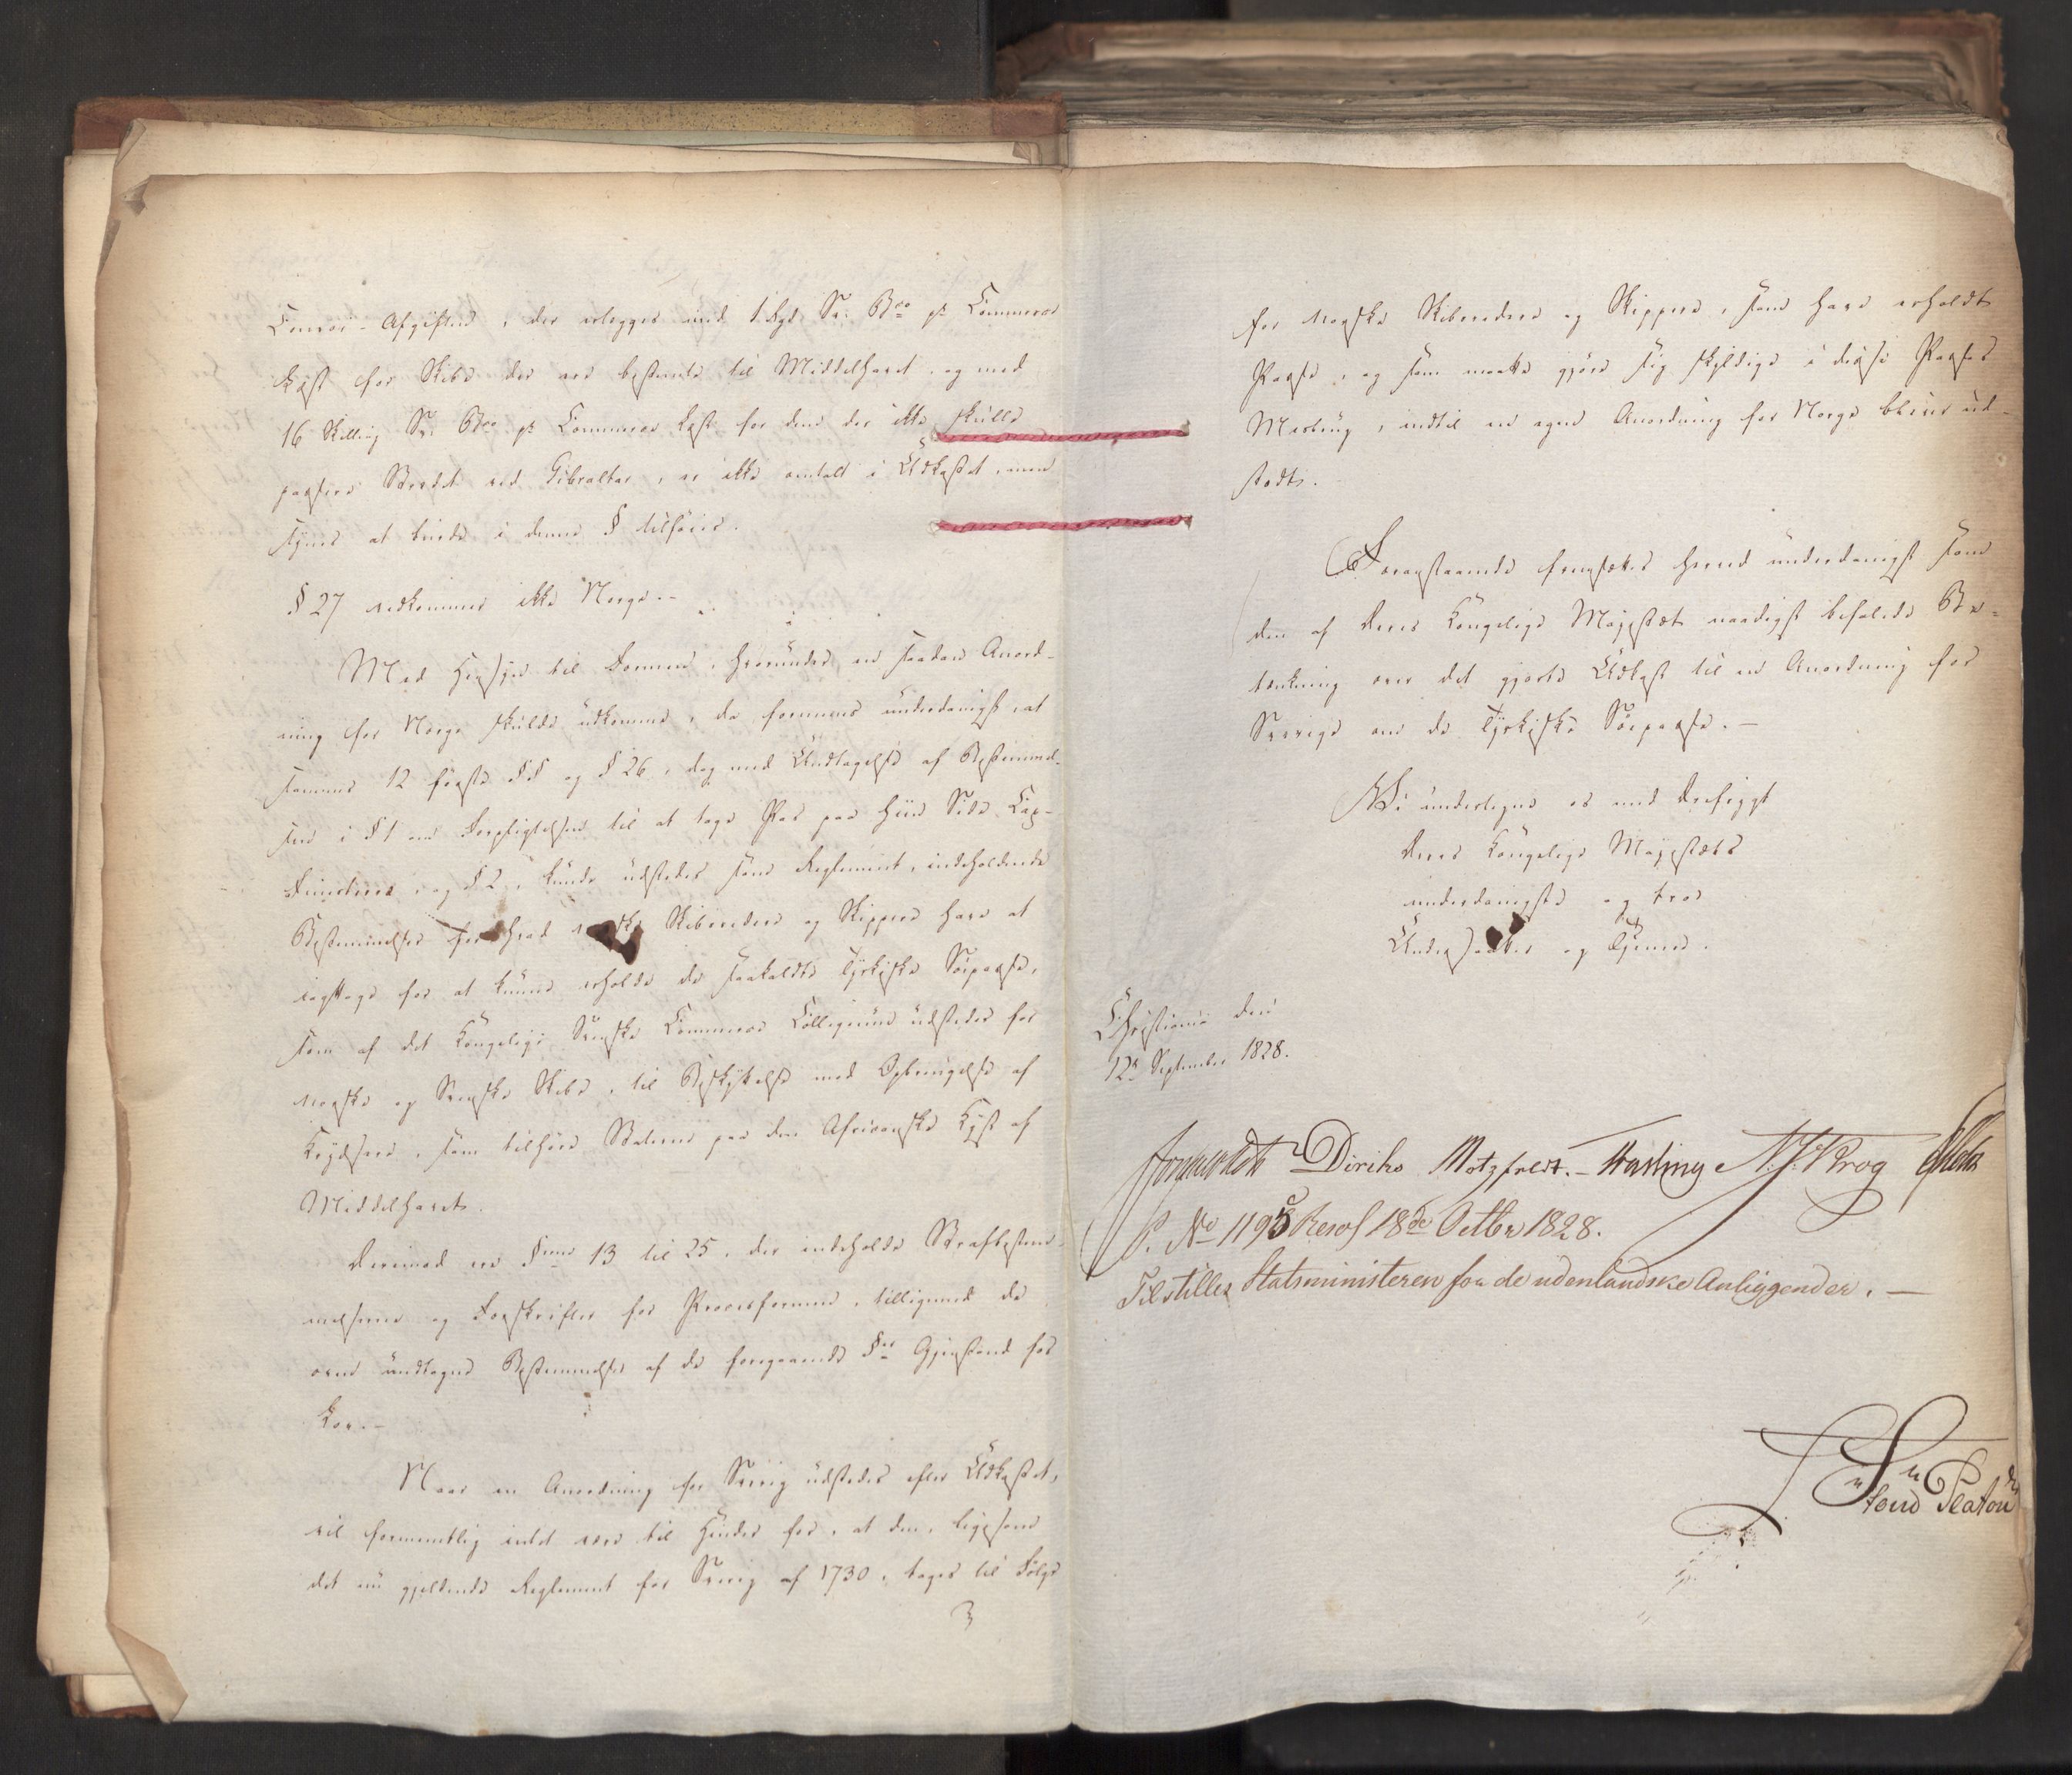 Convoi-Afgiften, der erlægges med 1 Rd Sv: Bco pr Commerce
Læst for Skibe der ere bestemte til Middelhavet, og med
16 Skilling Sv: Bco pr Commerce Læst for dem der ikke skulle
passere Strædet ved Gibraltar, er ikke omtalt i Udkastet, men
synes at burde i denne § tilføies.
§ 27 vedkommer ikke Norge.-
Med Hensyn til Formen, hvorunder en saadan Anord-
ning for Norge skulde udkomme, da formenes underdanigst, at
sammes 12 første §§ og § 26, dog med Undtagelse af Bestemmel-
sen i § 1 om Forpligtelsen til at tage Pas paa hiin Side Cap-
Finisterre, og § 2, kunde udstedes som Reglement, indeholdende
Bestemmelser for hvad norske Skibsredere og Skippere have at
iagttage for at kunne erholde de saakaldte Tyrkiske Søepasse,
som af det Kongelige Svenske Commerce Collegium udstedes for
norske og Svenske Skibe, til Beskyttelse mod Opbringelse af
Krydsere, som tilhøre Staterne paa den Africanske Kyst af
Middelhavet.
Derimod ere §erne 13 til 25, der indeholde Strafbestem-
melserne og Forskrifter for Procesformen, tilligemed de
oven undtagne Bestemmelser af de foregaaende §er Gjenstand for
Lov.-
Naar en Anordning for Sverig udstedes efter Udkastet,
vil formeentlig intet være til Hinder for, at den, ligesom
det nu gjeldende Reglement for Sverig af 1730, tages til Følge
for norske Skibsredere og Skippere, som have erholdt
Passe, og som maatte gjøre sig skyldige i disse Passes
Misbrug, indtil en egen Anordning for Norge bliver ud-
stedt.
Foranstaaende fremsættes herved underdanigst som
den af Deres Kongelige Majestæt naadigst befalede Be-
tænkning over det gjorte Udkast til en Anordning for
Sverige om de Tyrkiske Søepasse.-
Vi undertegne os med Dybeste
Deres Kongelige Majestæts
underdanigste og troe
Undersaatter og Tjenere.
Christiania den
12te September 1828.
Diriks Motzfeldt.- Hasting N.J. Krog
P. No 1195 Resol 18de Octbr 1828.
Tilstilles Statsministeren for de udenlandske Anliggender.-